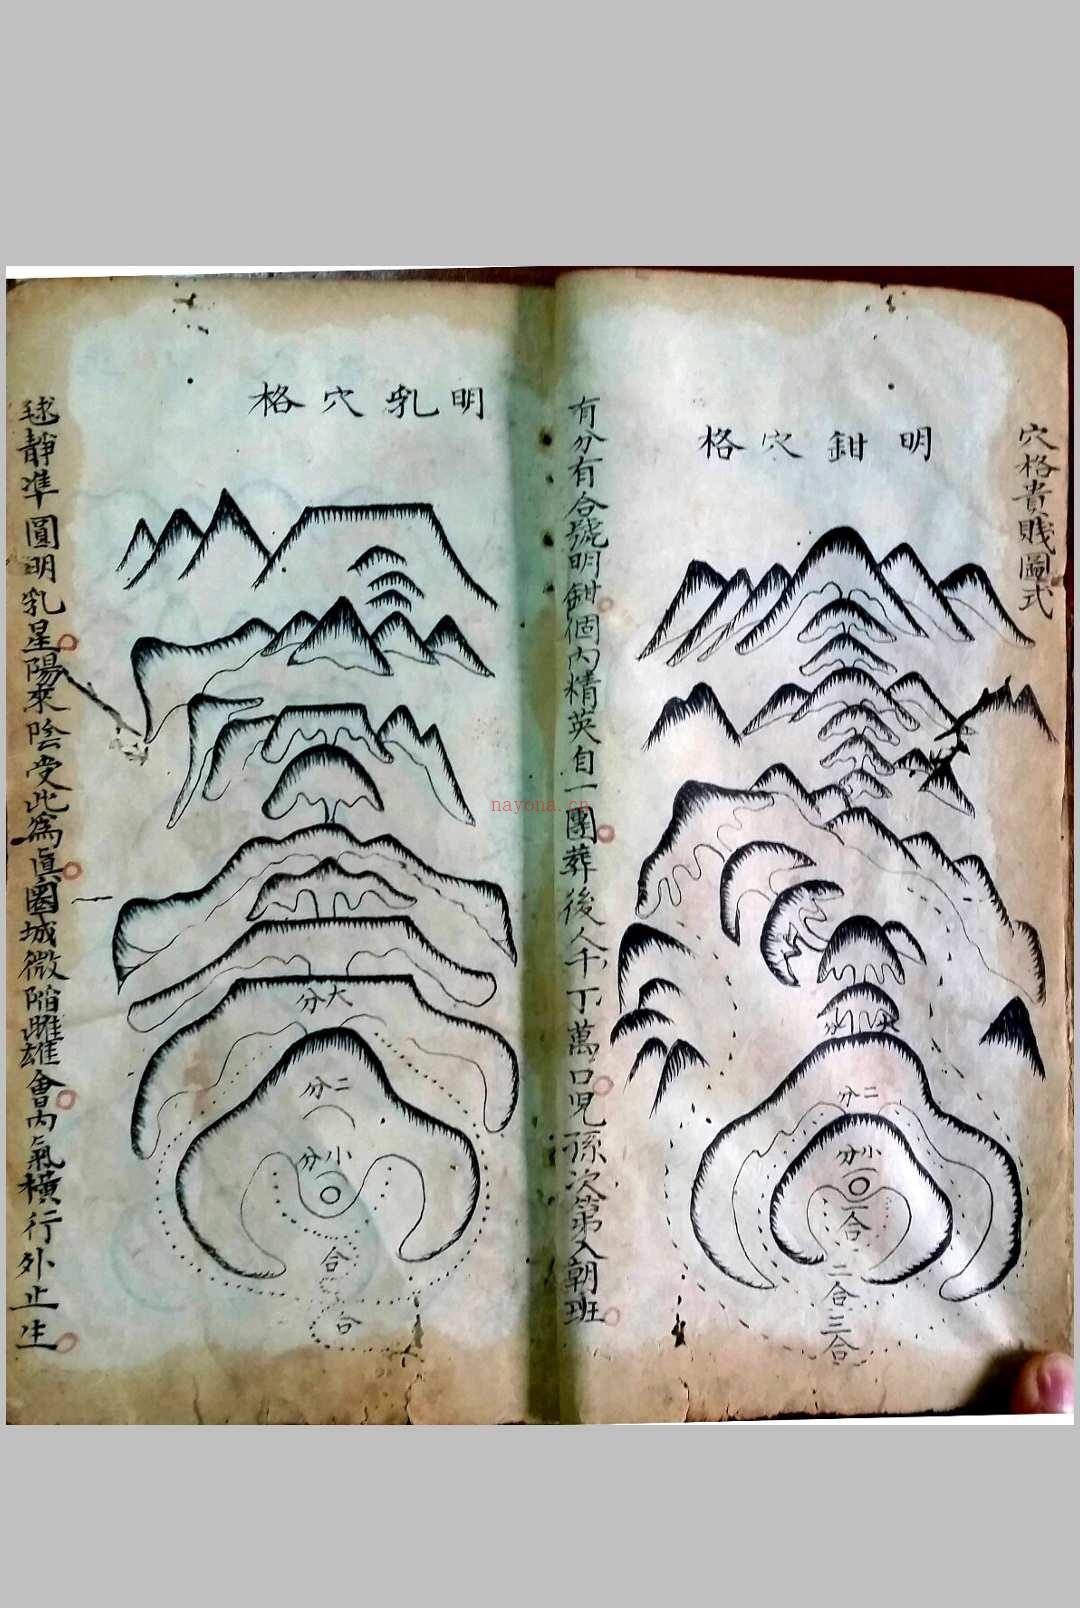 穴格貴賤圖式
明鉗穴格
大分
二分
小分
一合
二合
三合
有分有合號明鉗個內精英自一團葬後人千丁萬口児孫次第入朝班
明乳穴格
大分
二分
小分
合
合
毬靜準圓明乳星陽來陰受此為真圈城微陷雌雄會內氣橫行外止生
nayona.cn